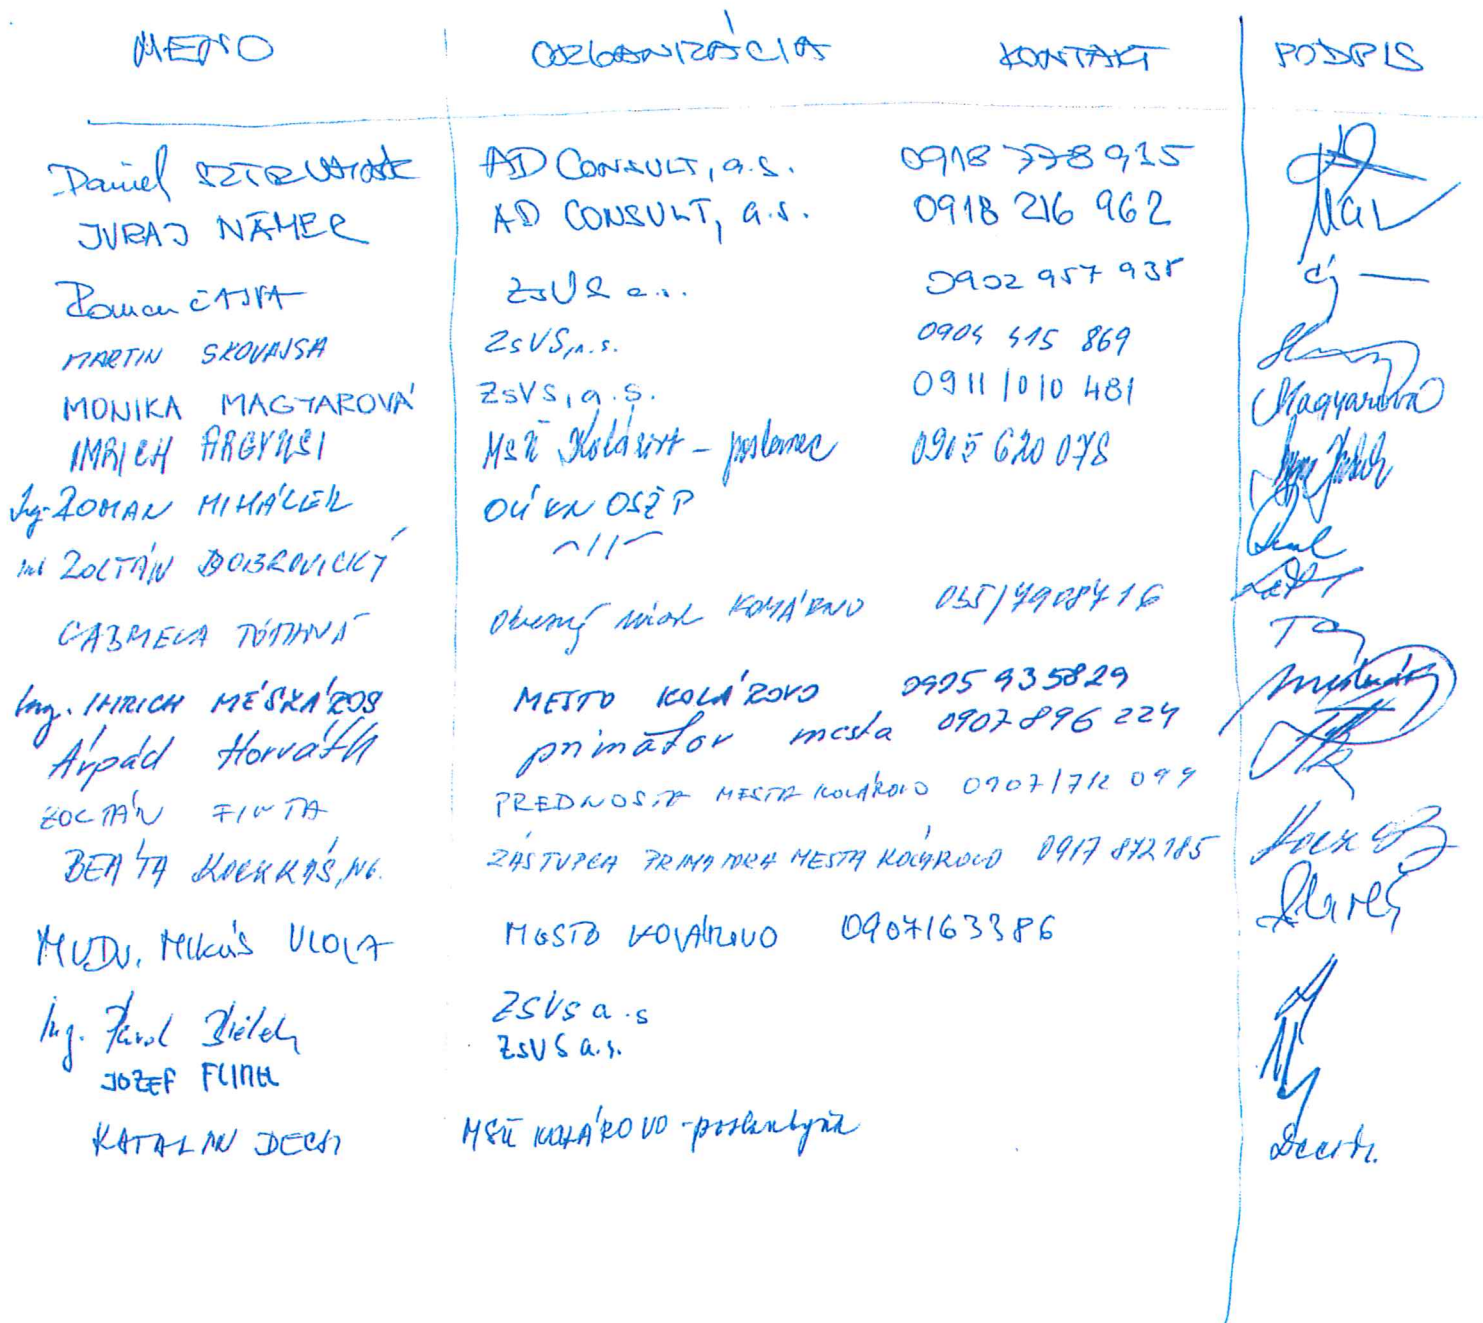 MENO ORGANIZÁCIA KONTAKT PODPIS
Daniel AD CONSULT, a.s. 0918 778 915
JURAJ NÁMER AD CONSULT, a.s. 0918 216 962
Roman ČAJPA ZsVS a.s. 0902 957 935
MARTIN SKOVAJSA ZsVS, a.s. 0904 415 869
MONIKA MAGYAROVÁ ZsVS, a.s. 0911/010 481 Magyarová
IMRICH MsÚ Kolárovo - poslanec 0905 620 078
Ing. ROMAN MIHÁLEK OÚ KN OSŽP
ZOLTÁN DOBROVICKÝ -//-
GABRIELA TÓTHOVÁ Okresný úrad KOMÁRNO 035/7908716
Ing. IMRICH MÉSZÁROS MESTO KOLÁROVO 0905 935829
Árpád Horváth primátor mesta 0907 896 224
ZOLTÁN FINTA PREDNOSTA MESTA KOLÁROVO 0907/712 099
BEÁTA ZÁSTUPCA PRIMÁTORA MESTA KOLÁROVO 0917 872 185
MUDr. MESTO KOLÁROVO 0907163386
Ing. ZSVS a.s
JOZEF ZsVS a.s.
KATALIN DECSI MSÚ KOLÁROVO - poslankyňa